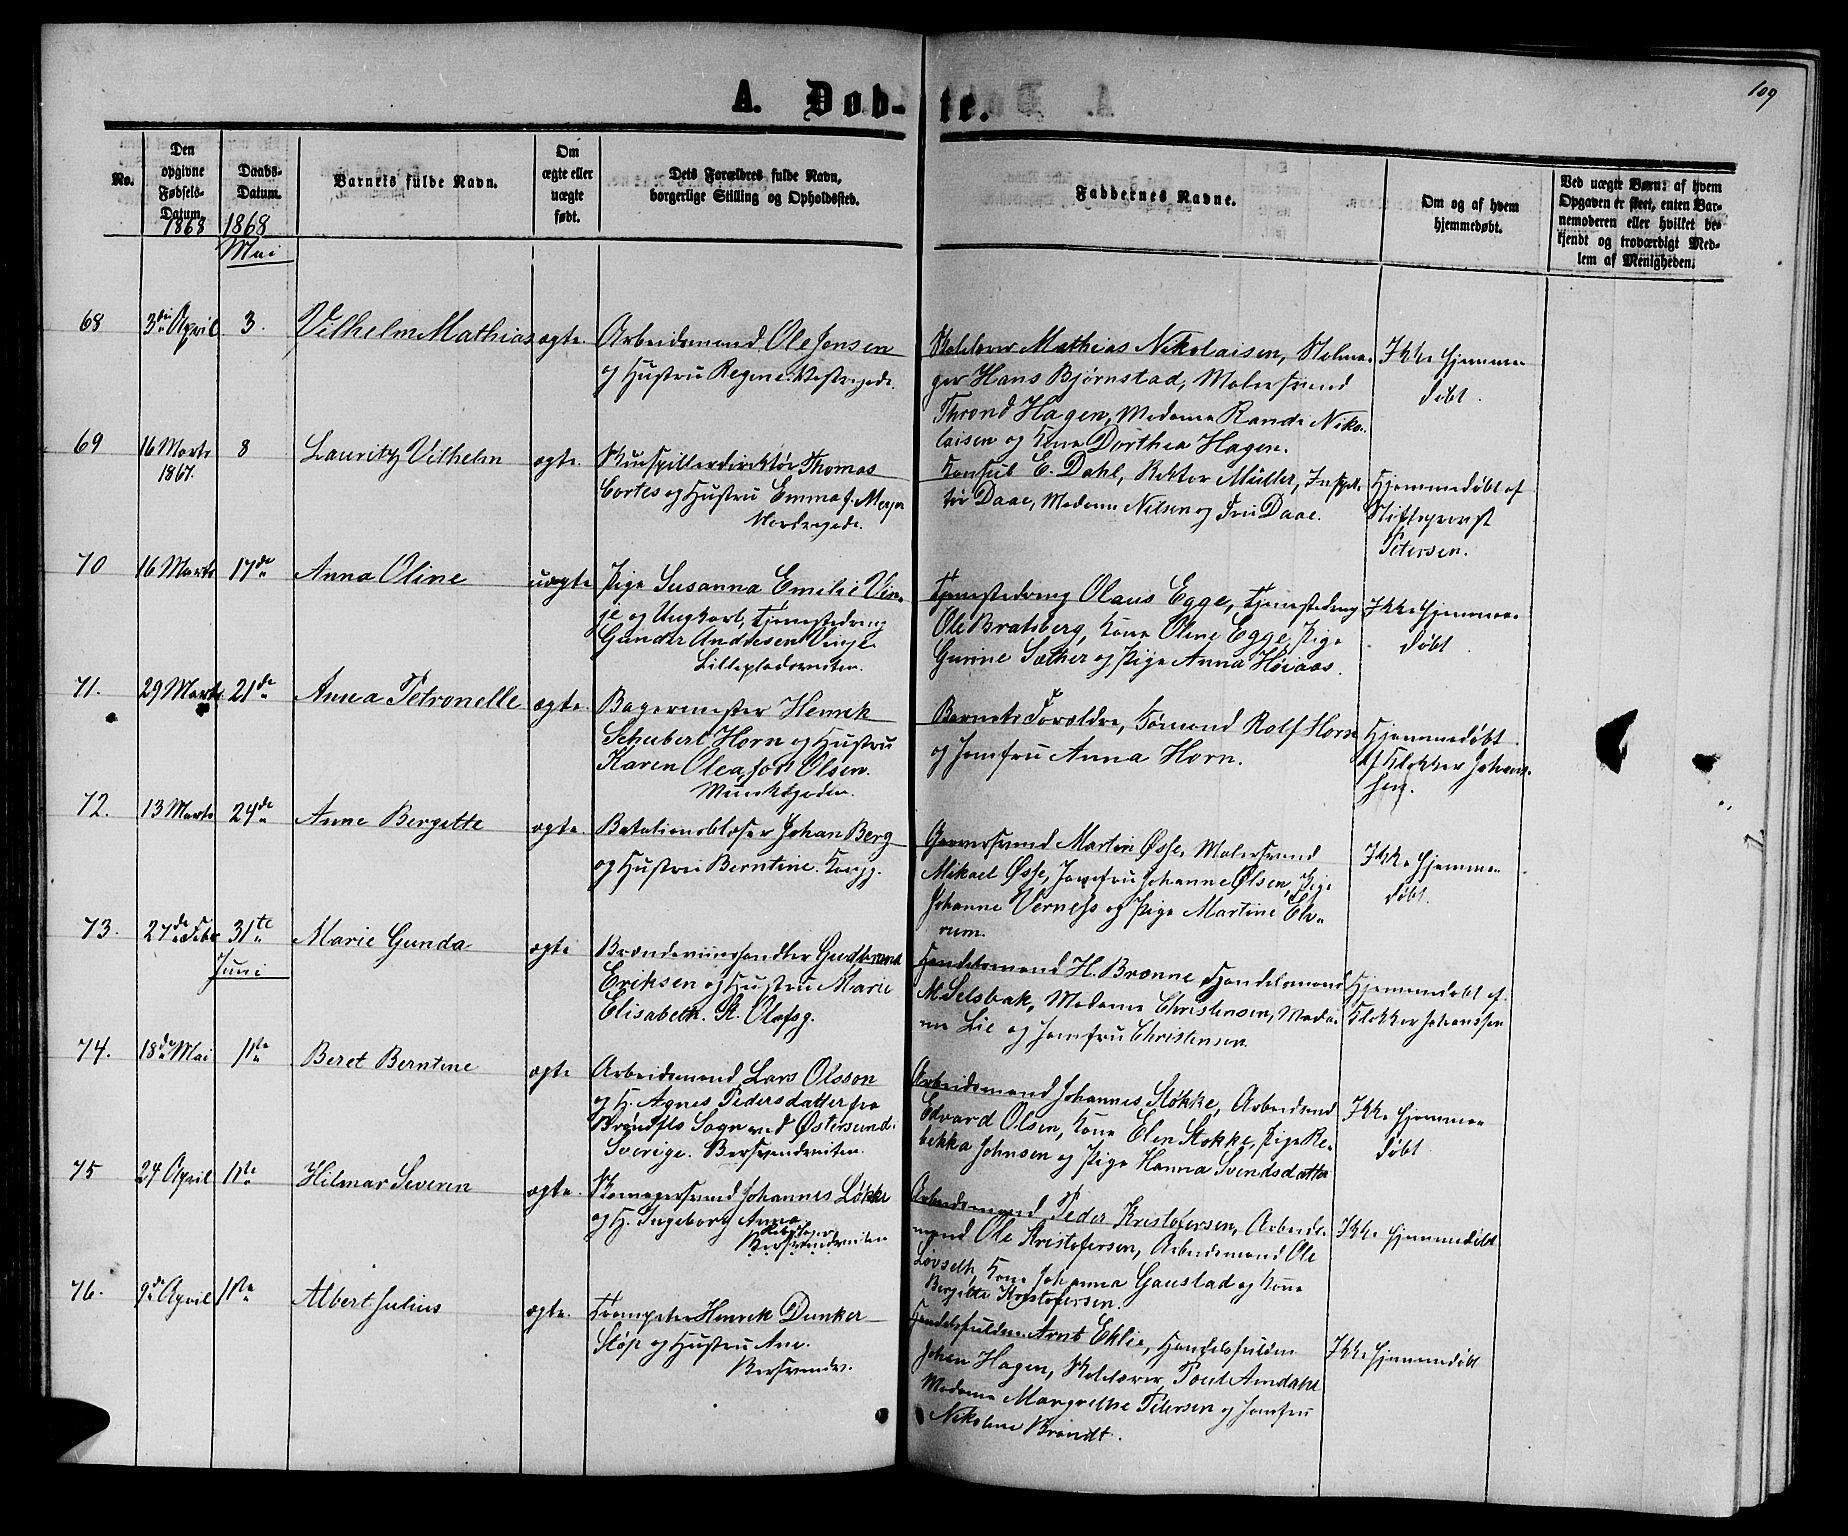 109
A. Døb-te.
No.
Den
opgivne
Fødsels-
Datum.
1868
Daabs-
Datum.
1868
Mai
Barnets fulde Navn.
Om
ægte eller
uægte
født.
Dets Forældres fulde Navn,
borgerlige Stilling og Opholdssted.
Faddernes Navne.
Om og af hvem
hjemmedøbt.
Ved uægte Børn: af hvem
Opgaven er skeet, enten Bar-
nemoderen eller hvilket be-
kjendt og troværdigt Med-
lem af Menigheden.
68
3die April
3.
Vilhelm Mathias
ægte.
Arbeidsmand Ole Jensen
og Hustru Regine.
Skolelærer Mathias Nikolaisen,
ger Hans Bjørnstad, Malersvend
Thrond Hagen, Madame Randi Niko-
laisen og Kone Dorthea Hagen.
Ikke hjemme-
døbt.
69
16 Marts
1867.
8
Lauritz Vilhelm
ægte.
Skuespillerdirektør Thomas
Cortes og Hustru Emma f. Meyer
Nordregade.
Konsul E. Dahl, Rektor Müller, Inspek-
tør Daae, Madame Nilsen og Fru Daae.
Hjemmedøbt af
Stiftsprovst
Petersen.
70
16 Marts
17de
Anna Oline
uægte
Pige Susanna Emilie Vin-
je og Ungkarl, Tjenestedreng
Gunder Andresen Vinje.
Lillepladsveiten.
Tjenestedreng Olaus Egge, Tjenestedreng
Ole Bratsberg, Kone Oline Egge, Pige
Gurine Sæther og Pige Anna Høiaas.
Ikke hjemme-
døbt
71.
29 Marts
21de
Anna Petronelle
ægte
Bagermester Henrik
Schubert Horn og Hustru
Karen Olea, født Olsen.
Munkegaden.
Barnets Forældre, Sømand Rolf Horn
og Jomfru Anna Horn.
Hjemmedøbt
af Klokker Johans-
sen.
72.
13 Marts
24de
Anne Bergitte
ægte.
Batalionsblæser Johan Berg
og Hustru Berntine.
Garversvend Martin Øsse, Malersvend
Mikael Øsse, Jomfru Johanne Olsen, Pige
Johanne Verness og Pige Martine Elv-
rum.
Ikke hjemme-
døbt.
73.
27de Febr
31te
Juni
Marie Gunda
ægte
Brændeviinshandler Gudbrand
Eriksen og Hustru Marie
Elisabeth. St. Olafsg.
Handelsmand H. Brænne, Handelsmand
M. Selsbak, Madame Christensen, Mada-
me Lie og Jomfru Christensen.
Hjemmedøbt af
Klokker Johanssen
74.
18de Mai
11te
Beret Berntine
ægte
Arbeidsmand Lars Olsson
og H. Agnes Pedersdatter fra
Brøndflo Sogn ved Østersund i
Sverige. Bersvendveiten.
Arbeidsmand Johannes Støkke, Arbeidsmd
Edvard Olsen, Kone Elen Støkke, Pige Re-
bekka Johnsen og Pige Hanna Svendsdatter
Ikke hjemme-
døbt.
75
24 April
11te
Hilmar Severin
ægte.
Skomagersvend Johannes Løkke
og H. Ingeborg Anna
Bersvendveiten
Arbeidsmand Peder Kristofersen, Arbeids-
mand Ole Kristofersen, Arbeidsmand Ole
Løvseth, Kone Johanna Gaustad og Kone
Bergitte Kristofersen.
Ikke hjemmedøbt
76.
9de April
11te
Albert Julius
ægte.
Trompeter Henrik Dunker
Støp og Hustru Ane.
Bersvendv.
Handelsfuldm. Arnt Eklie, Handelsfuldm.
Johan Hagen, Skolelærer Poul Amdahl
Madame Margrethe Petersen og Jomfru
Nikoline Brandt.
Ikke hjemmedøbt